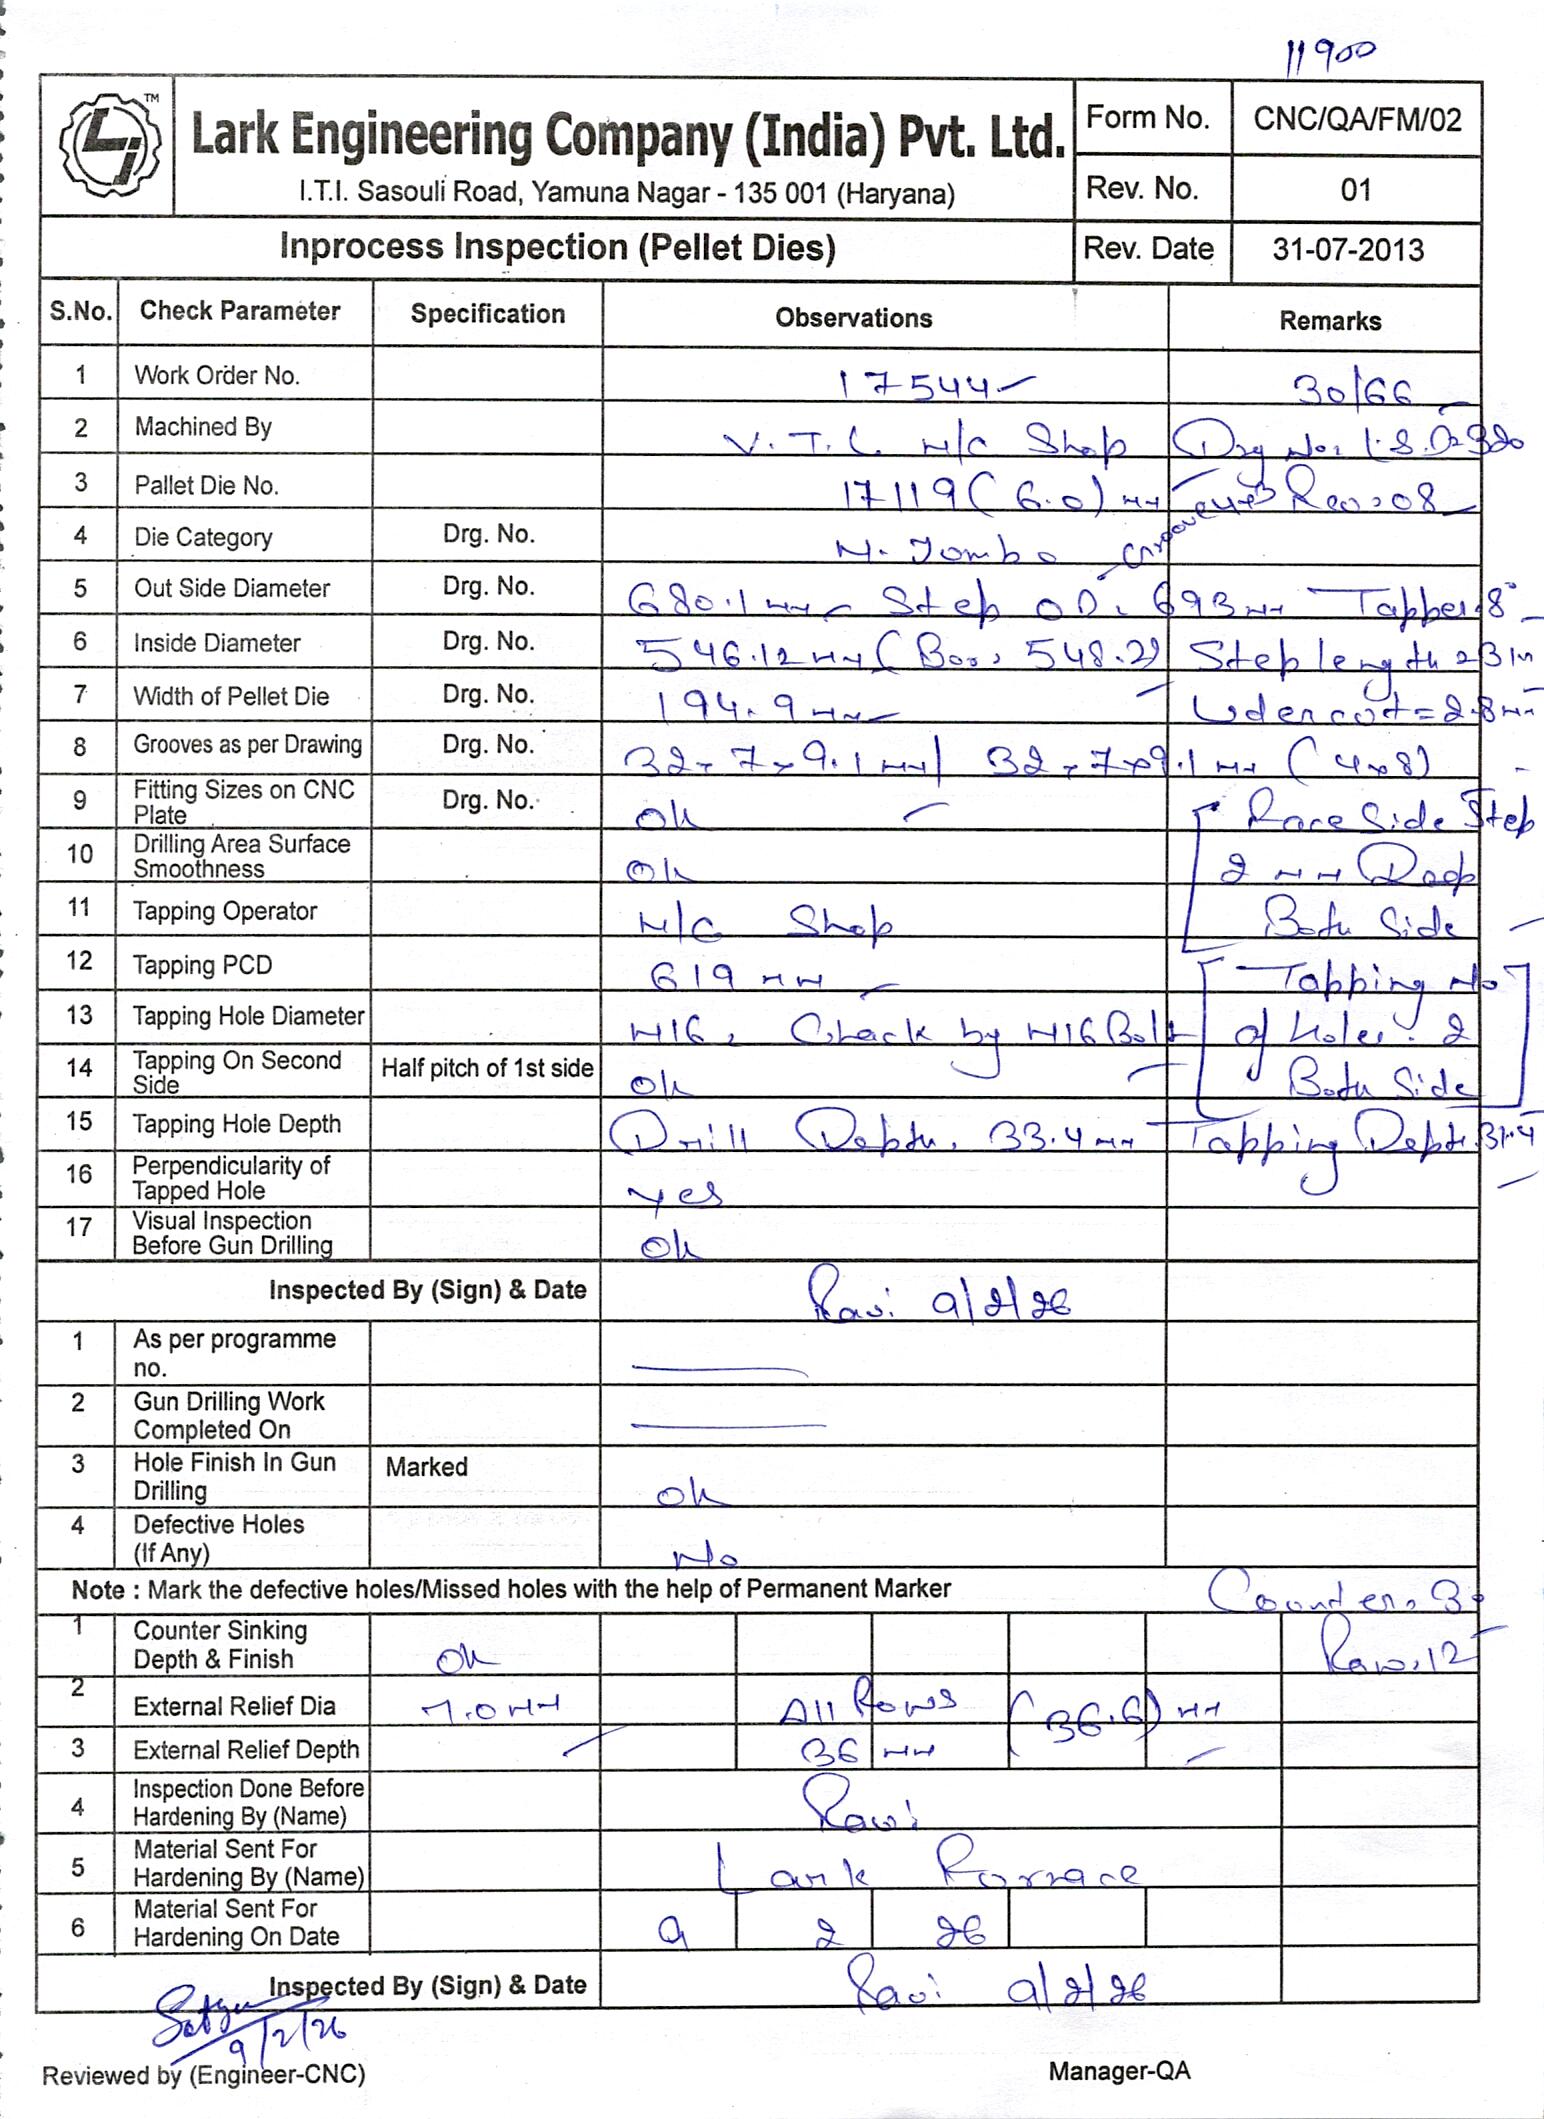 11900
LJ TM
Lark Engineering Company (India) Pvt. Ltd.
I.T.I. Sasouli Road, Yamuna Nagar - 135 001 (Haryana)
Form No. CNC/QA/FM/02
Rev. No. 01
Inprocess Inspection (Pellet Dies)
Rev. Date 31-07-2013
S.No. Check Parameter Specification Observations Remarks
1 Work Order No. 17544 30/66
2 Machined By V.T.L. M/C Shop Drg No:
3 Pallet Die No. 17119 (6.0) mm Rev:08
4 Die Category Drg. No. M. Jombo Groove
5 Out Side Diameter Drg. No. 680.1 mm Step OD. 693mm Tapper.8°
6 Inside Diameter Drg. No. 546.12 mm (Bor, 548.2) Step length
7 Width of Pellet Die Drg. No. 194.9 mm Udercut = 2.8mm
8 Grooves as per Drawing Drg. No. 32 x 7 x 9.1 mm / 32 x 7 x 9.1 mm (4x8)
9 Fitting Sizes on CNC Plate Drg. No. Ok Race Side Step
10 Drilling Area Surface Smoothness Ok 2 mm Deep
11 Tapping Operator M/C Shop Both Side
12 Tapping PCD 619 mm Tapping No
13 Tapping Hole Diameter M16, Check by M16 Bolt of holes: 2
14 Tapping On Second Side Half pitch of 1st side Ok Both Side
15 Tapping Hole Depth Drill Depth. 33.4mm Tapping Dept. 31.4
16 Perpendicularity of Tapped Hole yes
17 Visual Inspection Before Gun Drilling Ok
Inspected By (Sign) & Date Ravi 9/2/26
1 As per programme no.
2 Gun Drilling Work Completed On
3 Hole Finish In Gun Drilling Marked Ok
4 Defective Holes (If Any) No
Note : Mark the defective holes/Missed holes with the help of Permanent Marker Counter. 30
1 Counter Sinking Depth & Finish Ok Raw.12
2 External Relief Dia 7.0 mm All Rows (36.6) mm
3 External Relief Depth 36 mm
4 Inspection Done Before Hardening By (Name) Ravi
5 Material Sent For Hardening By (Name) Lark Fornace
6 Material Sent For Hardening On Date 9 2 26
Inspected By (Sign) & Date Ravi 9/2/26
9/2/26
Reviewed by (Engineer-CNC) Manager-QA